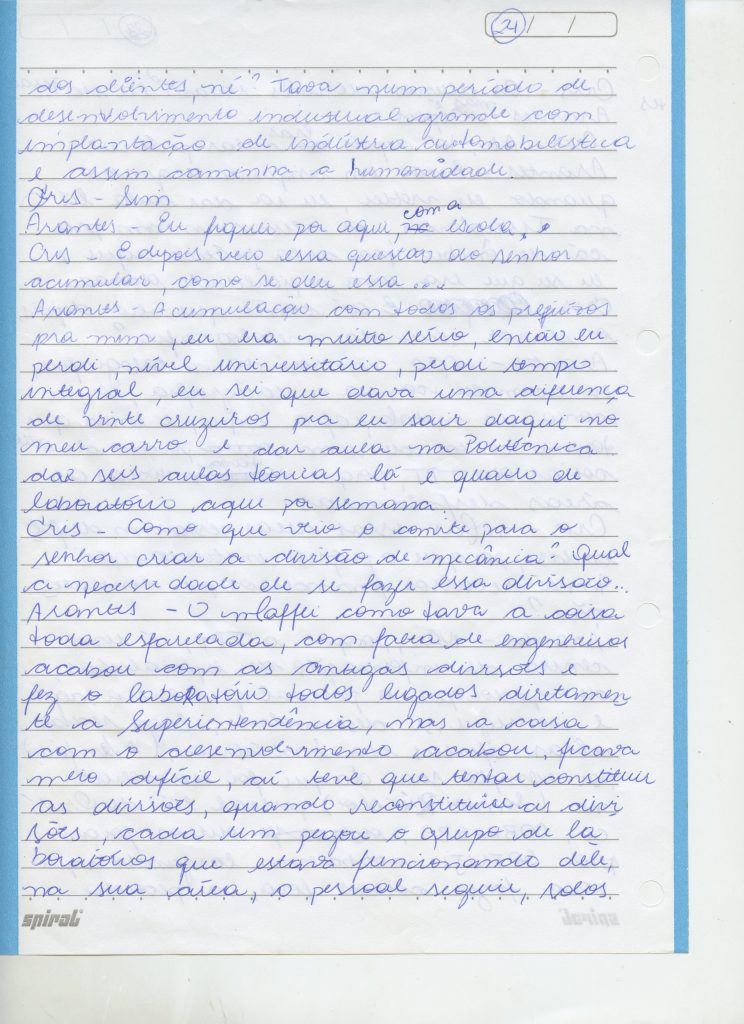 24 / /
dos clientes, né? Tava num período de
desenvolvimento industrial grande com
implantação de indústria automobilística
e assim caminha a humanidade.
Cris - Sim
Arantes - Eu fiquei por aqui, com a escola,
Cris - E depois veio essa questão do senhor
acumular, como se deu essa ...
Arantes - Acumulação com todos os prejuízos
pra mim, eu era muito sério, então eu
perdi, nível universitário, perdi tempo
integral, eu sei que dava uma diferença
de vinte cruzeiros pra eu sair daqui no
meu carro e dar aula na Politécnica
dar seis aulas teóricas lá e quatro de
laboratório aqui por semana.
Cris - Como que veio o convite para o
senhor criar a divisão de mecânica? Qual
a necessidade de se fazer essa divisão...
Arantes - O Maffei como tava a coisa
toda esfarelada, com falta de engenheiros
acabou com as antigas divisões e
fez o laboratório todos ligados diretamen-
te a Superientendência, mas a coisa
com o desenvolvimento acabou, ficava
meio difícil, aí teve que tentar constituir
as divisões, quando reconstituiu as divi
sões, cada um pegou o grupo de la
boratórios que estava funcionando dele,
na sua área, o pessoal seguiu, solos
spiral